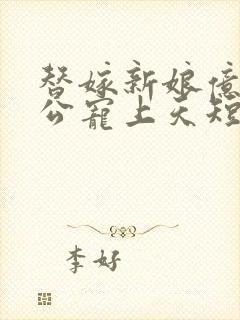 替嫁新娘億
公寵上天短
李好